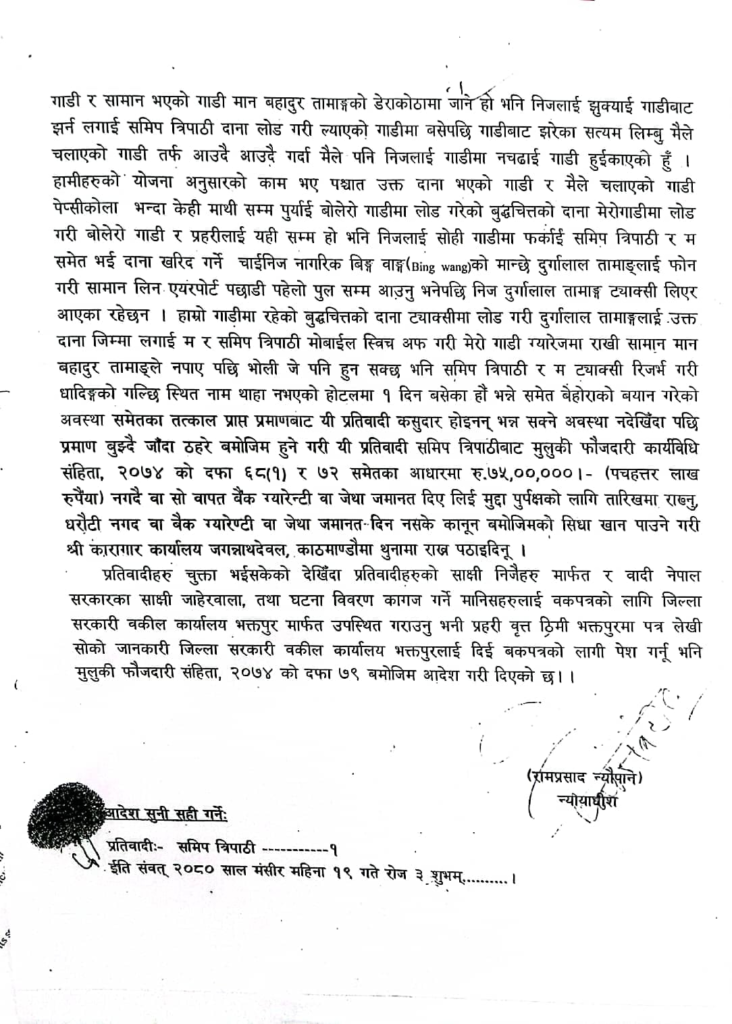 गाडी र सामान भएको गाडी मान बहादुर तामाङ्गको डेराकोठामा जाने हो भनि निजलाई झुक्याई गाडीबाट
झर्न लगाई समिप त्रिपाठी दाना लोड गरी ल्याएको गाडीमा बसेपछि गाडीबाट झरेका सत्यम लिम्बु मैले
चलाएको गाडी तर्फ आउदै आउदै गर्दा मैले पनि निजलाई गाडीमा नचढाई गाडी हुईकाएको हुँ ।
हामीहरुको योजना अनुसारको काम भए पश्चात उक्त दाना भएको गाडी र मैले चलाएको गाडी
पेप्सीकोला भन्दा केही माथी सम्म पुर्याई बोलेरो गाडीमा लोड गरेको बुद्धचित्तको दाना मेरोगाडीमा लोड
गरी बोलेरो गाडी र प्रहरीलाई यही सम्म हो भनि निजलाई सोही गाडीमा फर्काई समिप त्रिपाठी र म
समेत भई दाना खरिद गर्ने चाईनिज नागरिक बिङ्ग वाङ्ग(Bing wang)को मान्छे दुर्गालाल तामाङ्लाई फोन
गरी सामान लिन एयरपोर्ट पछाडी पहेलो पुल सम्म आउनु भनेपछि निज दुर्गालाल तामाङ्ग ट्याक्सी लिएर
आएका रहेछन । हाम्रो गाडीमा रहेको बुद्धचित्तको दाना ट्याक्सीमा लोड गरी दुर्गालाल तामाङ्गलाई उक्त
दाना जिम्मा लगाई म र समिप त्रिपाठी मोबाईल स्विच अफ गरी मेरो गाडी ग्यारेजमा राखी सामान मान
बहादुर तामाङ्ले नपाए पछि भोली जे पनि हुन सक्छ भनि समिप त्रिपाठी र म ट्याक्सी रिजर्भ गरी
धादिङ्गको गल्छि स्थित नाम थाहा नभएको होटलमा १ दिन बसेका हौं भन्ने समेत बेहोराको बयान गरेको
अवस्था समेतका तत्काल प्राप्त प्रमाणबाट यी प्रतिवादी कसुदार होइनन् भन्न सक्ने अवस्था नदेखिँदा पछि
प्रमाण बुझ्दै जाँदा ठहरे बमोजिम हुने गरी यी प्रतिवादी समिप त्रिपाठीबाट मुलुकी फौजदारी कार्यविधि
संहिता, २०७४ को दफा ६८(१) र ७२ समेतका आधारमा रु.७५,००,०००।- (पचहत्तर लाख
रुपैंया) नगदै वा सो वापत बैंक ग्यारेन्टी वा जेथा जमानत दिए लिई मुद्दा पुर्पक्षको लागि तारिखमा राख्नु,
धरौटी नगद वा बैक ग्यारेण्टी वा जेथा जमानत दिन नसके कानून बमोजिमको सिधा खान पाउने गरी
श्री कारागार कार्यालय जगन्नाथदेवल, काठमाण्डौमा थुनामा राख्न पठाइदिनू ।
प्रतिवादीहरु चुक्ता भईसकेको देखिँदा प्रतिवादीहरुको साक्षी निजैहरु मार्फत र वादी नेपाल
सरकारका साक्षी जाहेरवाला, तथा घटना विवरण कागज गर्ने मानिसहरुलाई वकपत्रको लागि जिल्ला
सरकारी वकील कार्यालय भक्तपुर मार्फत उपस्थित गराउनु भनी प्रहरी वृत्त ठिमी भक्तपुरमा पत्र लेखी
सोको जानकारी जिल्ला सरकारी वकील कार्यालय भक्तपुरलाई दिई बकपत्रको लागी पेश गर्नू भनि
मुलुकी फौजदारी संहिता, २०७४ को दफा ७९ बमोजिम आदेश गरी दिएको छ।।
(रामप्रसाद न्यौपाने)
न्यायाधीश
आदेश सुनी सही गर्नेः
प्रतिवादीः- समिप त्रिपाठी -----------१
ईति संवत् २०८० साल मंसीर महिना १९ गते रोज ३ शुभम्..........।